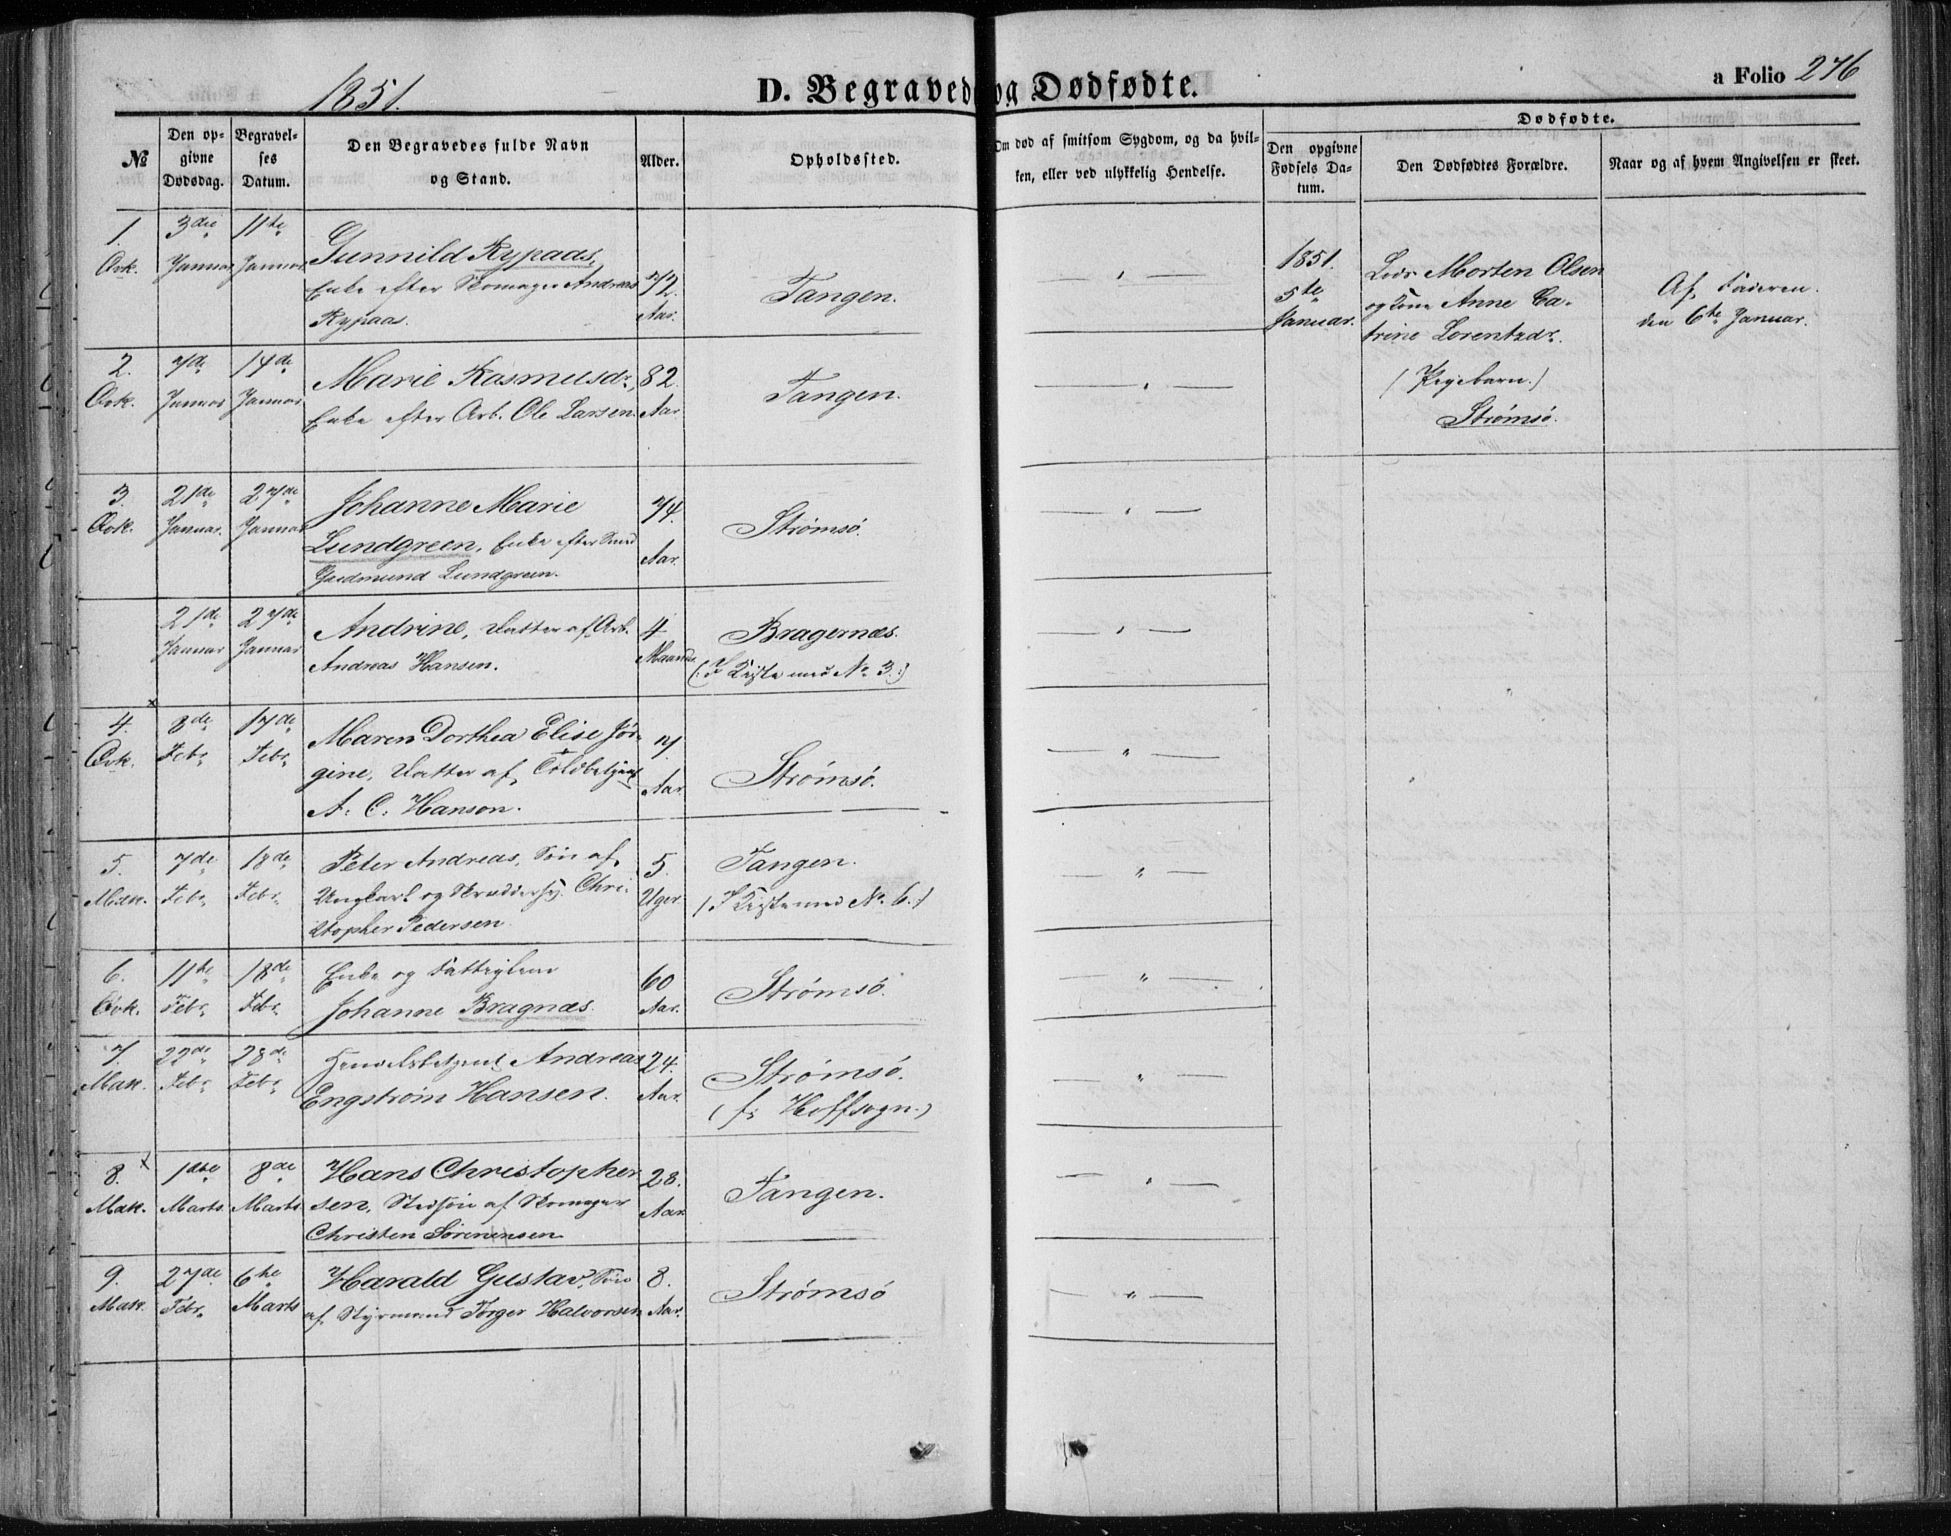 1851.
D. Begravede og Dødfødte.
a Folio 276
№
Den op-
givne
Dødsdag.
Begravel-
ses
Datum.
Den Begravedes fulde Navn
og Stand.
Alder.
Opholdssted.
Om død af smitsom Sygdom, og da hvil-
ken, eller ved ulykkelig Hendelse.
Dødfødte.
Den opgivne
Fødsels Da-
tum.
Den Dødfødtes Forældre.
Naar og af hvem Angivelsen er skeet.
1.
Qvk.
3die
Januar
11te
Januar
Gunnild Rypaas,
Enke efter Skomager Andreas
Rypaas.
72.
Aar.
Tangen.
1851.
5te
Januar.
Lods Morten Olsen
og Kone Anne Ca-
trine Lorentzdr.
(Pigebarn.)
Strømsø.
Af Faderen.
den 6te Januar.
2.
Qvk.
7de
Januar
14de
Januar
Marie Rasmusdr,
Enke efter Arb. Ole Larsen.
82.
Aar
Tangen.
3.
Qvk.
21de
Januar.
27de
Januar
Johanne Marie
Lundgreen, Enke efter Smed
Gudmund Lundgreen.
74.
Aar.
Strømsø.
21de
Januar
27de
Januar
Andrine, Datter af Arb.
Andreas Hansen.
4
Maander
Bragernæs.
(: I Kiste med No 3.:)
4.
Qvk.
8de
Febr.
17de
Febr.
Maren Dorthea Elise Jør-
gine, Datter af Toldbetjent
A. C. Hanson.
7.
Aar.
Strømsø.
5.
Mdk.
7de
Febr.
18de
Febr.
Peter Andreas, Søn af
Ungkarl og Skrædersv. Chri-
stopher Pedersen.
5.
Uger.
Tangen.
(I Kiste med No 6.)
6.
Qvk.
11te
Febr.
18de
Febr.
Enke og Fattiglem
Johanne Bragnæs.
60
Aar.
Strømsø.
7.
Mdk.
22de
Febr
28de
Febr.
Handelsbetjent Andreas
Engstrøm Hansen.
24.
Aar.
Strømsø.
(f. Hoffsogn.)
8.
Mdk.
1ste
Marts
8de
Marts
Hans Christopher
sen, Stedsøn af Skomager
Christen Sørenensen
28.
Aar.
Tangen.
9.
Mdk.
27de
Febr.
6te
Marts
Harald Gustav, Søn
af Styrmand Torger Halvorsen
8.
Aar.
Strømsø